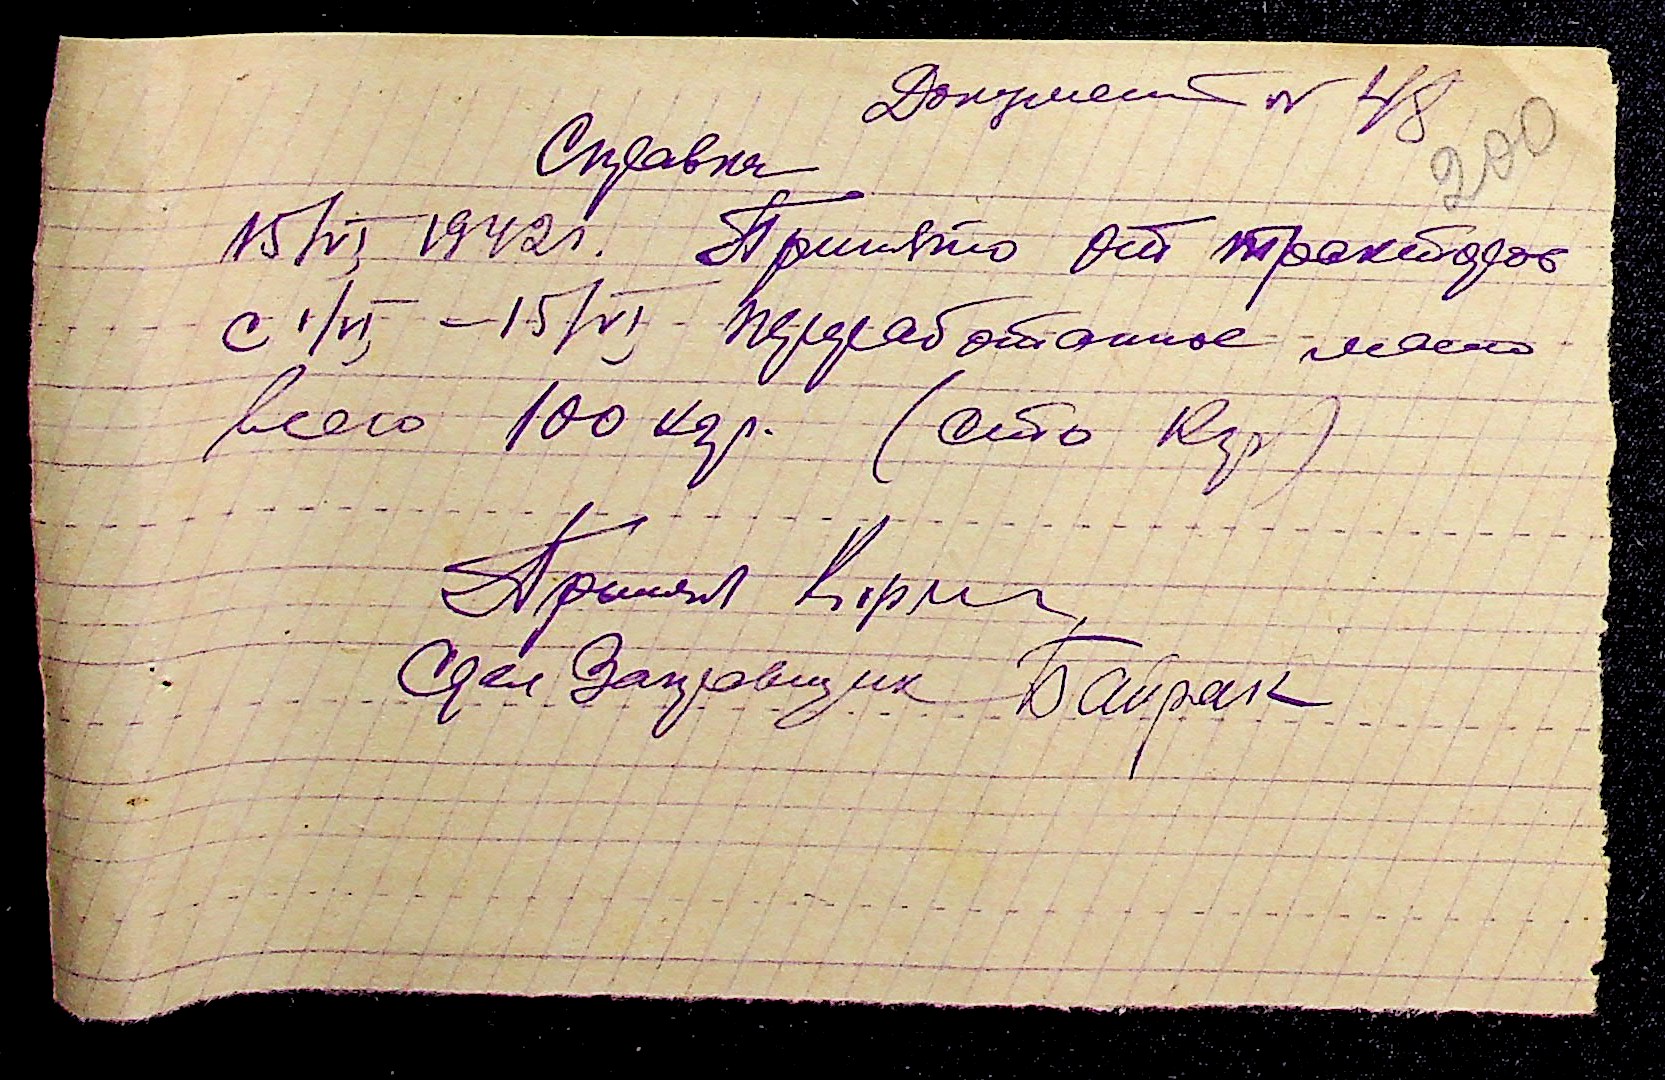 Документ № 48
200
Справка
15/VI 1942г. Принято от тракторов
с 1/VI – 15/VI переработанное масло
всего 100 кгр. (сто кгр)
Принял
Сдал Заправщик Байрак